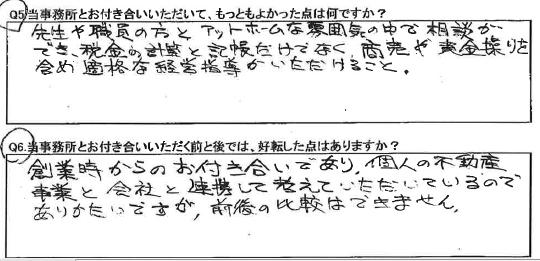 Q5.当事務所とお付き合いいただいて、もっともよかった点は何ですか?
先生や職員の方とアットホームな雰囲気の中で相談が
でき、税金の計算と記帳だけでなく、商売や資金操りを
含め適格な経営指導がいただけること。
Q6.当事務所とお付き合いいただく前と後では、好転した点はありますか?
創業時からのお付き合いであり、個人の不動産
事業と会社と連携して考えていただいているので
ありがたいですが、前後の比較はできません。